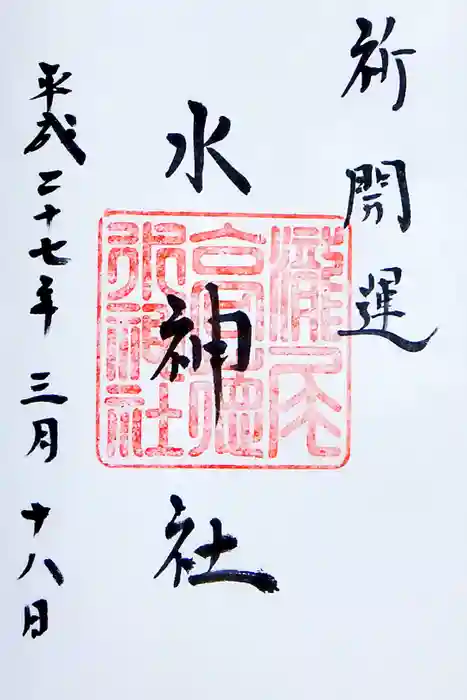 祈開運
水神社
平成二十七年三月十八日
水神社